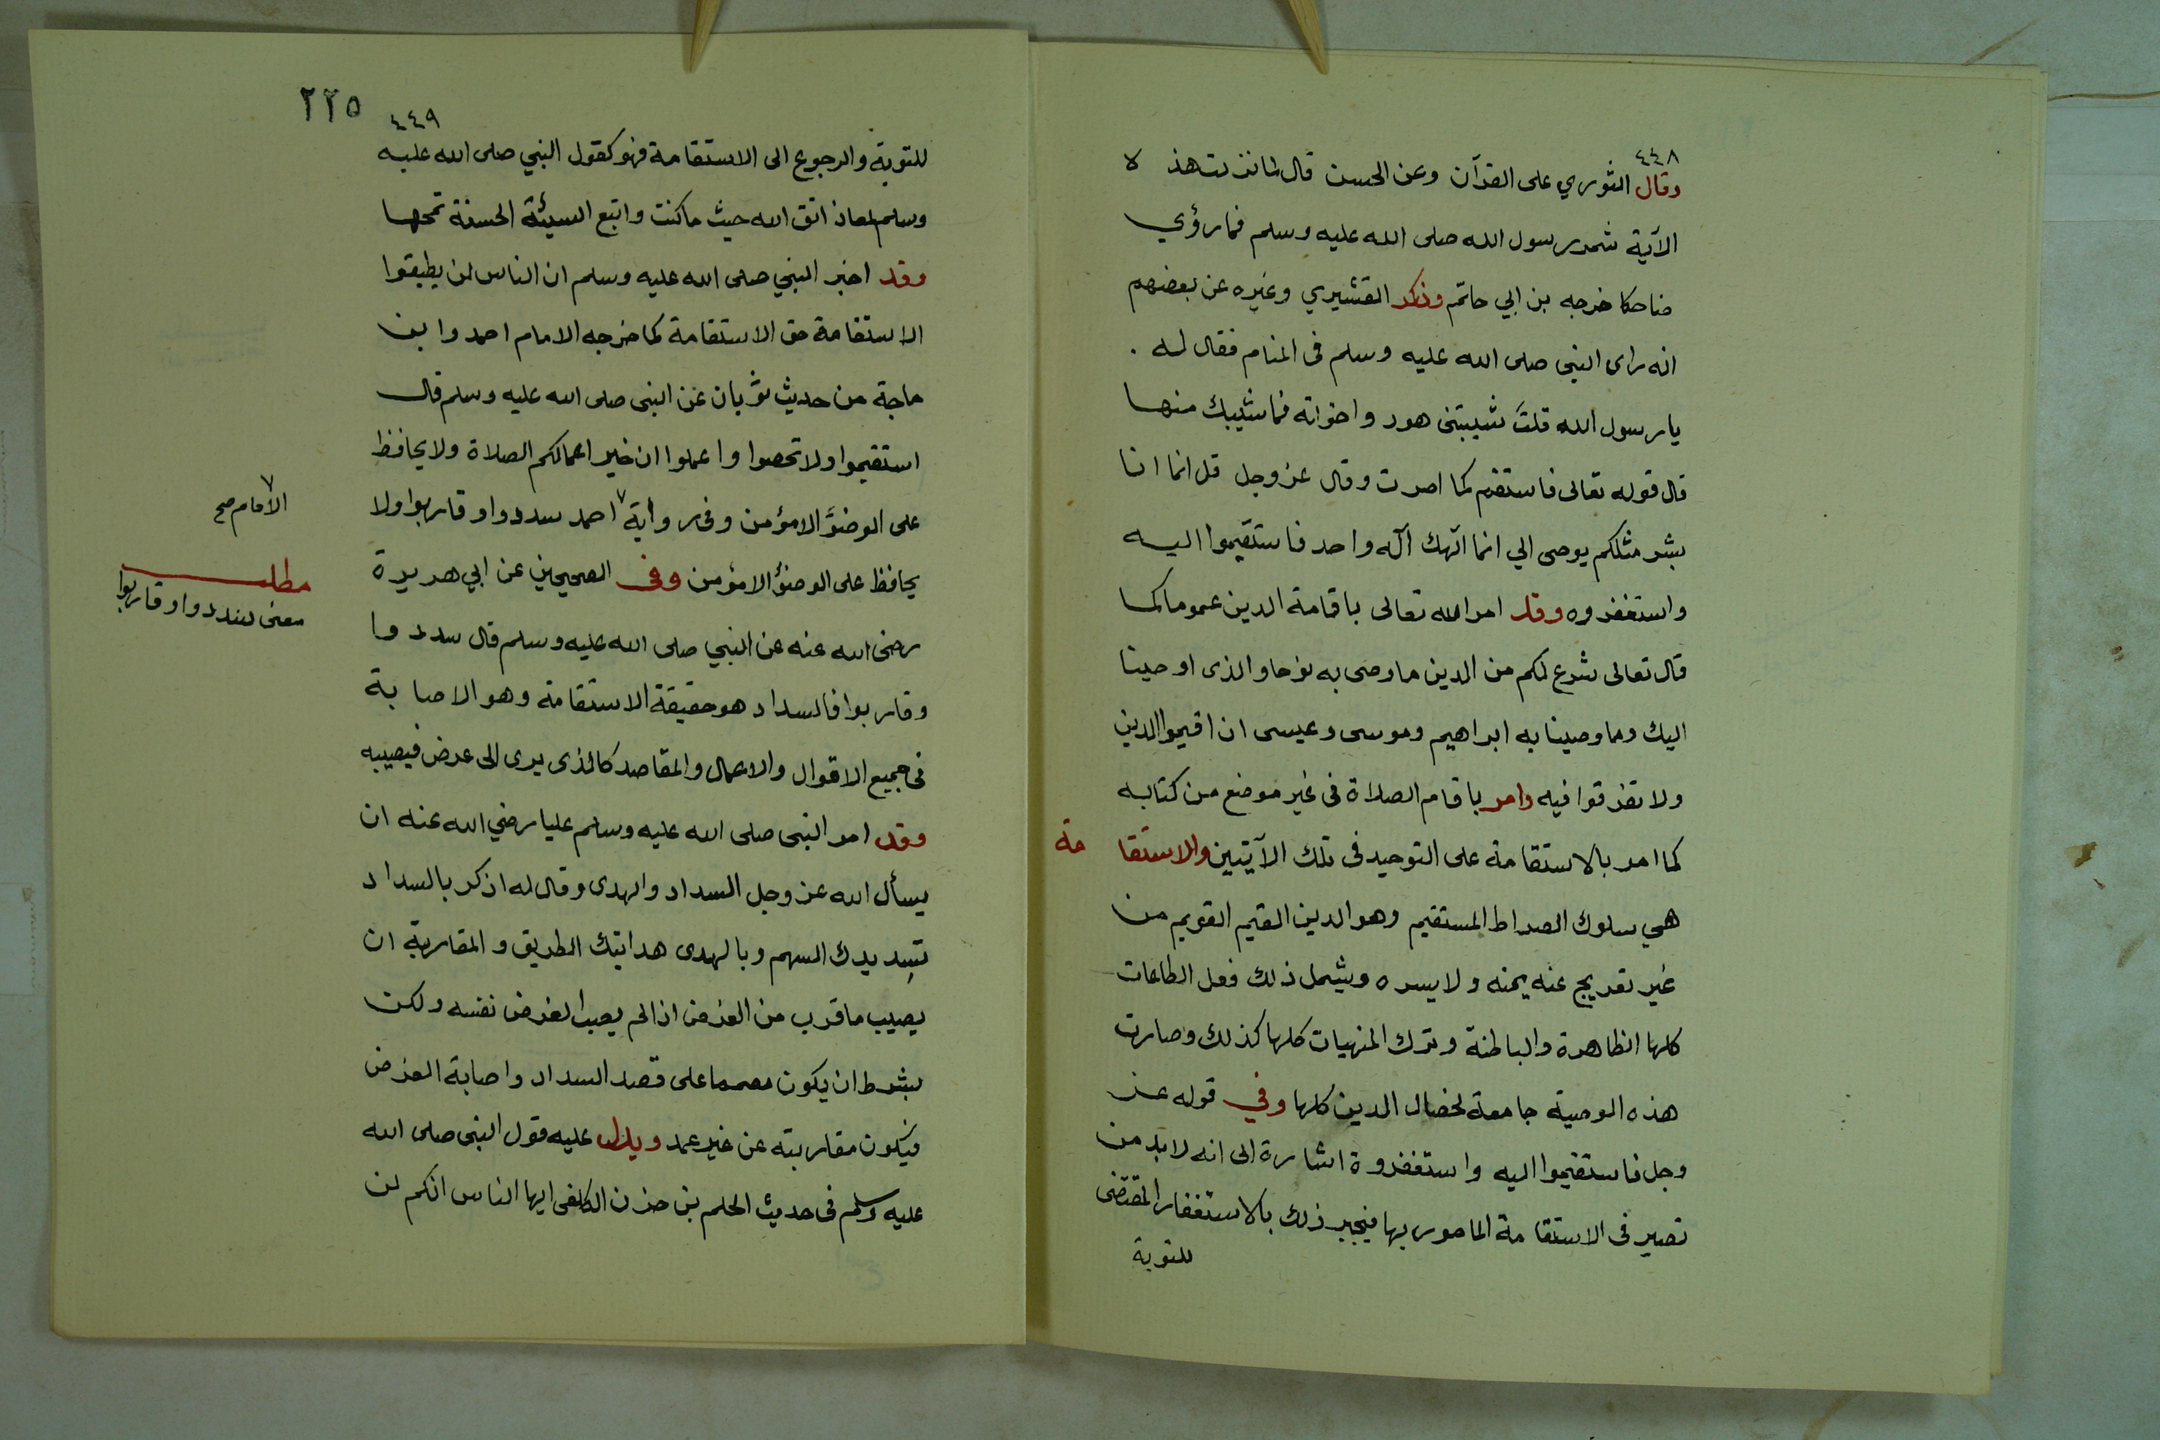 ٤٤٨
وقال الثوري على القرآن وعن الحسن قال لما نزلت هذه لا
الآية شمر رسول الله صلى الله عليه وسلم فما رؤي
ضاحكا خرجه بن ابي حاتم وذكر القشيري وغيره عن بعضهم
انه راى النبي صلى الله عليه وسلم فى المنام فقال له .
يا رسول الله قلتَ شيبتنى هود واخواته فما شيبك منها
قال قوله تعالى فاستقم كما امرت وقال عز وجل قل انما انا
بشر مثلكم يوحى الي انما آلهك آله واحد فاستقيموا اليه
واستغفروه وقد امر الله تعالى باقامة الدين عموما كما
قال تعالى شرع لكم من الدين ما وصى به نوحا والذى اوحينا
اليك وما وصينا به ابراهيم وموسى وعيسى ان اقيموا الدين
ولا تفرقوا فيه وامر باقام الصلاة فى غير موضع من كتابه
كما امر بالاستقامة على التوحيد فى تلك الآيتين والاستقا مة
هي سلوك الصراط المستقيم وهو الدين القيم القويم من
غير تعريج عنه يمنه ولا يسره ويشمل ذلك فعل الطاعات
كلها الظاهرة والباطنة وترك المنهيات كلها كذلك وصارت
هذه الوصية جامعة لخصال الدين كلها وفي قوله عز
وجل فاستقيموا اليه واستغفروة اشارة الى انه لا بد من
تصير فى الاستقامة المامور بها فيجبر ذلك بالاستغفار المقتضى
للتوبة
٢٢٥
٤٤٩
للتوبة والرجوع الى الاستقامة فهو كقول النبي صلى الله عليه
وسلم لمعاذ اتق الله حيث ما كنت واتبع السيئة الحسنة تمحها
وقد اخبر النبي صلى الله عليه وسلم ان الناس لن يطيقوا
الاستقامة حق الاستقامة كما خرجه الامام احمد وابن
ماجة من حديث ثوبان عن النبى صلى الله عليه وسلم قال
استقيموا ولا تحصوا واعملوا ان خير اعمالكم الصلاة ولا يحافظ
على الوضؤ الا مؤمن وفى رواية ٧ احمد سددوا وقاربوا ولا
يحافظ على الوضؤ الا مؤمن وفى الصحيحين عن ابي هريرة
رضى الله عنه عن النبي صلى الله عليه وسلم قال سددوا
وقاربوا فالسداد هو حقيقة الاستقامة وهو الاصابة
فى جميع الاقوال والاعمال والمقاصد كالذى يرى الى عرض فيصيبه
وقد امر النبى صلى الله عليه وسلم عليا رضي الله عنه ان
يسأل الله عز وجل السداد والهدى وقال له اذكر بالسداد
تسديدك السهم وبالهدى هدايتك الطريق والمقاربة ان
يصيب ما قرب من الغرض اذا لم يصب الغرض نفسه ولكن
بشرط ان يكون مصمما على قصد السداد واصابة الغرض
فيكون مقاربته عن غير عمد ويدل عليه قول النبى صلى الله
عليه وسلم فى حديث الحلم بن حزن الكلفى ايها الناس انكم لن
٧
الامام صح
مطلب
معنى سددوا وقاربوا